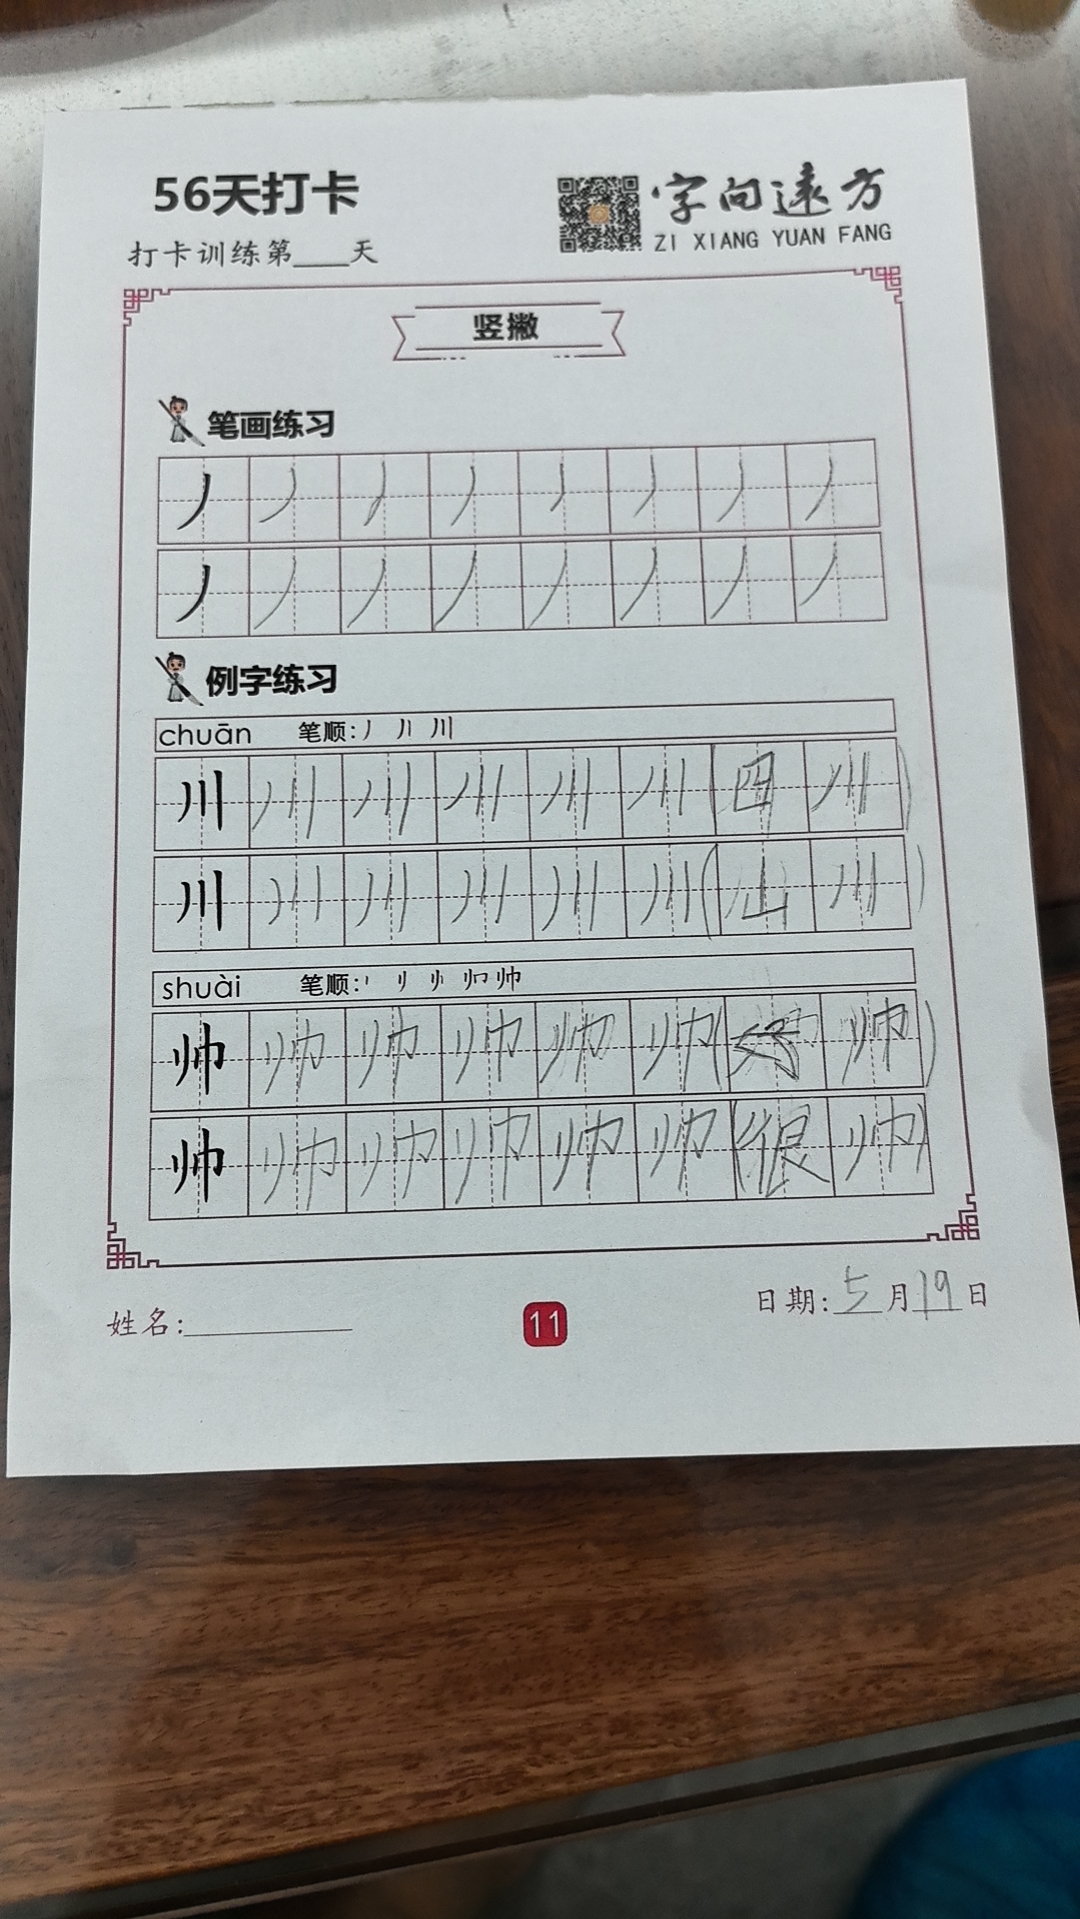 56天打卡
字向远方
ZI XIANG YUAN FANG
打卡训练第___天
竖撇
笔画练习
丿 丿 丿 丿 丿 丿 丿 丿
丿 丿 丿 丿 丿 丿 丿 丿
例字练习
chuān 笔顺:丿 丿丨 川
川 川 川 川 川 川 (四 川)
川 川 川 川 川 川 (山 川)
shuài 笔顺: 帅
帅 帅 帅 帅 帅 帅 ( 帅)
帅 帅 帅 帅 帅 帅 (很 帅)
姓名:
11
日期:5月19日